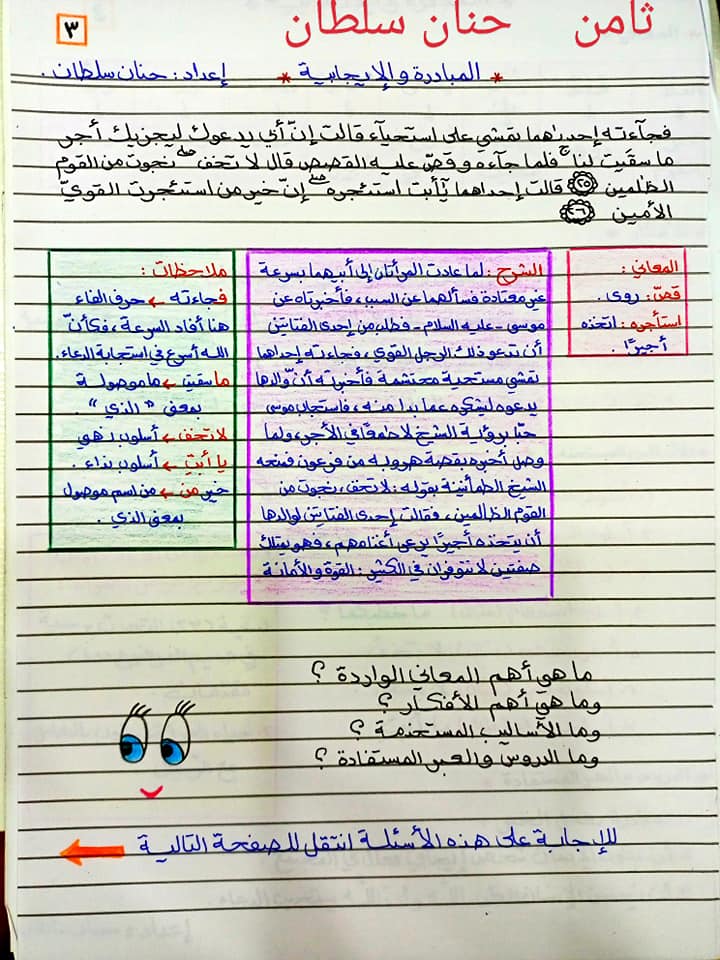 ثامن حنان سلطان
٣
* المبادرة والإيجابية * إعداد: حنان سلطان.
فجآءته إحدىاهما تمشي على استحيآء قالت إنّ أبي يدعوك ليجزيك أجر
ما سقيت لنا ۚ فلما جآءه وقصّ عليه القصص قال لا تخف ۖ نجوت من القوم
الظٰلمين ٢٥ قالت إحداهما يٰأبت استئجره ۖ إنّ خير من استئجرت القويّ
الأمين ٢٦
المعاني:
قصّ: روى.
استأجره: اتخذه
أجيرًا.
الشرح: لما عادت المرأتان إلى أبيهما بسرعة
غير معتادة فسألهما عن السبب، فأخبرتاه عن
موسى - عليه السلام - فطلب من إحدى الفتاتين
أن تدعو ذلك الرجل القوي، فجاءته إحداها
تمشي مستحية محتشمة فأخبرته أنّ والدها
يدعوه ليشكره عما بدا منه، فاستجاب موسى
حبًا برؤية الشيخ لا طمعًا في الأجر، ولما
وصل أخبره بقصة هروبه من فرعون فمنحه
الشيخ الطمأنينة بقوله: لا تخف، نجوت من
القوم الظالمين، فقالت إحدى الفتاتين لوالدها
أن يتخذه أجيرًا يرعى أغنامهم، فهو يمتلك
صفتين لا تتوفران في الكثير: القوة والأمانة
ملاحظات:
فجاءته ← حرف الفاء
هنا أفاد السرعة، فكأنّ
الله أسرع في استجابة الدعاء.
ما سقيت ← ما موصولة
بمعنى "الذي".
لا تخف ← أسلوب نهي
يا أبتِ ← أسلوب نداء.
خير من ← من اسم موصول
بمعنى الذي.
ما هي أهم المعاني الواردة؟
وما هي أهم الأفكار؟
وما الأساليب المستخدمة؟
وما الدروس والعبر المستفادة؟
للإجابة على هذه الأسئلة انتقل للصفحة التالية